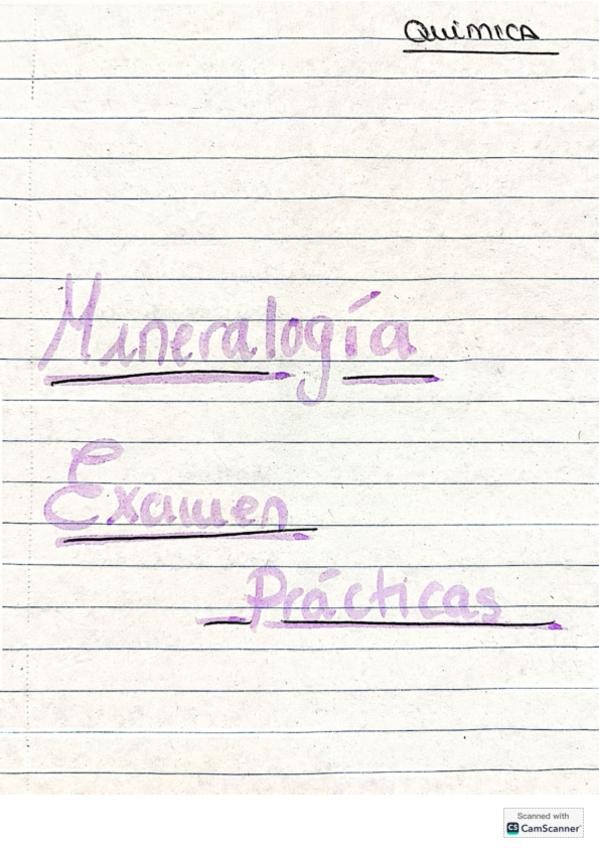 QUÍMICA
Mineralogía
Examen
Prácticas
Scanned with
CS CamScanner